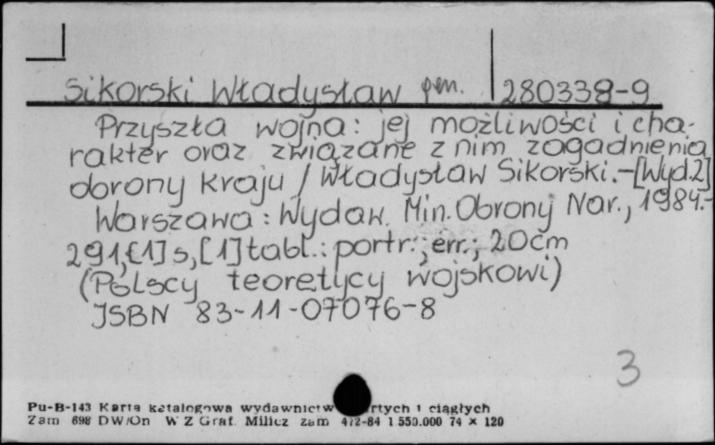 Sikorski Władysław gen. 280338-9
Przyszła wojna: jej możliwości i cha-
rakter oraz związane z nim zagadnienia
obrony kraju / Władysław Sikorski.-[Wyd.2]
Warszawa: Wydaw. Min. Obrony Nar., 1984.-
291,[1] s,[1] tabl.: portr.; err.; 20cm
(Polscy teoretycy wojskowi)
ISBN 83-11-07076-8
3
Pu-B-143 Karta katalogowa wydawnictw rtych i ciągłych
Zam 698 DW/On W Z Graf. Milicz zam 472-84 1 550.000 74 × 120